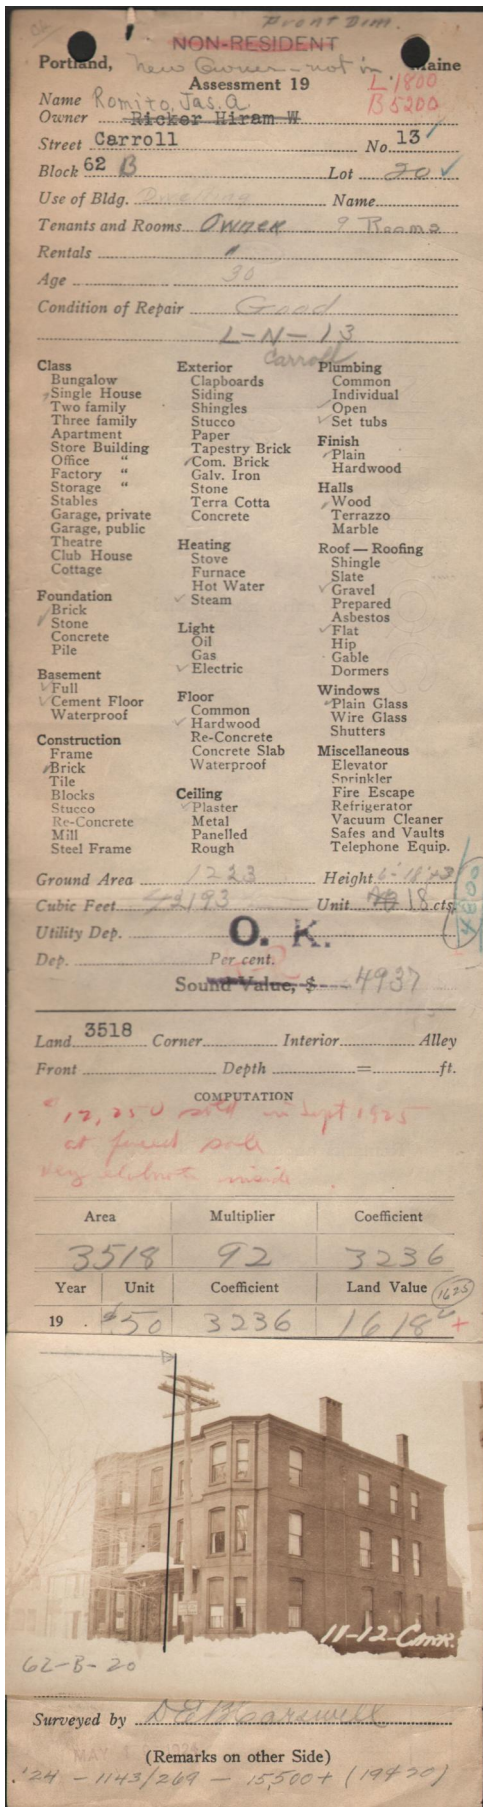 Front Dim.
OK
NON-RESIDENT
Portland, Maine
New Owner - not in
Assessment 19
L 1800
B 5200
Name Romito, Jas. A.
Owner Ricker Hiram W
Street Carroll No. 13
Block 62 B Lot 20
Use of Bldg. Dwelling Name
Tenants and Rooms Owner 9 Rooms
Rentals "
Age 30
Condition of Repair Good
L-N-13
Carroll
Class
Bungalow
Single House
Two family
Three family
Apartment
Store Building
Office "
Factory "
Storage "
Stables
Garage, private
Garage, public
Theatre
Club House
Cottage
Foundation
Brick
Stone
Concrete
Pile
Basement
Full
Cement Floor
Waterproof
Construction
Frame
Brick
Tile
Blocks
Stucco
Re-Concrete
Mill
Steel Frame
Exterior
Clapboards
Siding
Shingles
Stucco
Paper
Tapestry Brick
Com. Brick
Galv. Iron
Stone
Terra Cotta
Concrete
Heating
Stove
Furnace
Hot Water
Steam
Light
Oil
Gas
Electric
Floor
Common
Hardwood
Re-Concrete
Concrete Slab
Waterproof
Ceiling
Plaster
Metal
Panelled
Rough
Plumbing
Common
Individual
Open
Set tubs
Finish
Plain
Hardwood
Halls
Wood
Terrazzo
Marble
Roof — Roofing
Shingle
Slate
Gravel
Prepared
Asbestos
Flat
Hip
Gable
Dormers
Windows
Plain Glass
Wire Glass
Shutters
Miscellaneous
Elevator
Sprinkler
Fire Escape
Refrigerator
Vacuum Cleaner
Safes and Vaults
Telephone Equip.
Ground Area 1223 Height
Cubic Feet 42193 Unit 18 cts.
4800
Utility Dep.
O. K.
Dep. Per cent.
Sound Value, $ 4937
Land 3518 Corner Interior Alley
Front Depth = ft.
COMPUTATION
$12,250 sold in Sept 1925
at forced sale
Very elaborate inside
Area Multiplier Coefficient
3518 92 3236
Year Unit Coefficient Land Value 1625
19 . $.50 3236 1618 +
11-12-Cmr.
62-B-20
Surveyed by D E B Carswell
(Remarks on other Side)
'24 - 1143/269 - 15,500+ (19&20)